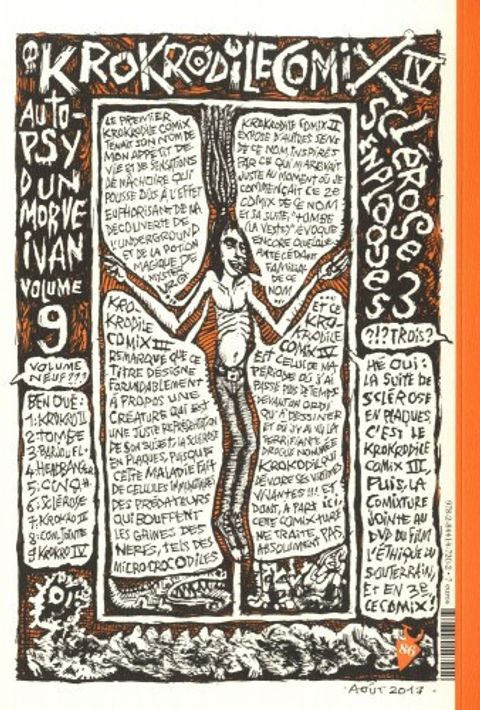 KROKRODILE COMIX IV
AUTO-
PSY
D'UN
MORVE
IVAN
VOLUME
9
SCLÉROSE EN PLAQUES 3
LE PREMIER
KROKRODILE COMIX
TENAIT SON NOM DE
MON APPÉTIT DE
VIE ET DE SENSATIONS
DE MÂCHOIRE QUI
POUSSE DUS À L'EFFET
EUPHORISANT DE MA
DÉCOUVERTE DE
L'UNDERGROUND
ET DE LA POTION
MAGIQUE DE
MYSTER
KROKRODILE COMIX II
EXPOSE D'AUTRES SENS
DE CE NOM INSPIRÉS
PAR CE QUI M'ARRIVAIT
JUSTE AU MOMENT OÙ JE
COMMENÇAIT CE 2E
COMIX DE CE NOM
ET SA SUITE, "TOMBE
(LA VESTE)" ÉVOQUE
ENCORE QUELQUE
ANTÉCÉDANT
FAMILIAL
DE CE
NOM
KRO-
KRODILE
COMIX III
REMARQUE QUE CE
TITRE DÉSIGNE
FORUNDABLEMENT
À PROPOS UNE
CRÉATURE QUI EST
UNE JUSTE REPRÉSENTATION
DE SON SUJET: LA SCLÉROSE
EN PLAQUES, PUISQUE
CETTE MALADIE FAIT
DE CELLULES IMMUNITAIRES
DES PRÉDATEURS
QUI BOUFFENT
LES GAINES DES
NERFS, TELS DES
MICRO-CROCODILES
... ET CE
KRO-
KRODILE
COMIX IV
EST CELUI DE MA
PÉRIODE OÙ J'AI
PASSÉ PLUS DE TEMPS
DEVANT UN ORDI
QU'À DESSINER
ET OÙ J'Y AI VU LA
TERRIFIANTE
DROGUE NOMMÉE
KROKODIL QUI
DÉVORE SES VICTIMES
VIVANTES !!!. ET
DONT, À PART ICI,
CETTE COMIXTURE
NE TRAITE PAS
ABSOLUMENT
VOLUME
NEUF???
BEN OUÉ:
1: KROKRO II
2: TOMBE
4: HEADBANGER
5: CINQ #
6: SCLÉROSE
7: KROKRO III
8: COM.JOINTE
9 KROKRO IV
?!? TROIS?
HÉ OUI:
LA SUITE DE
SCLÉROSE
EN PLAQUES,
C'EST LE
KROKRODILE
COMIX III,
PUIS, LA
COMIXTURE
JOINTE AU
DVD DU FILM
L'ÉTHIQUE DU
SOUTERRAIN,
ET EN 3E,
CE COMIX!
86
AOÛT 2017